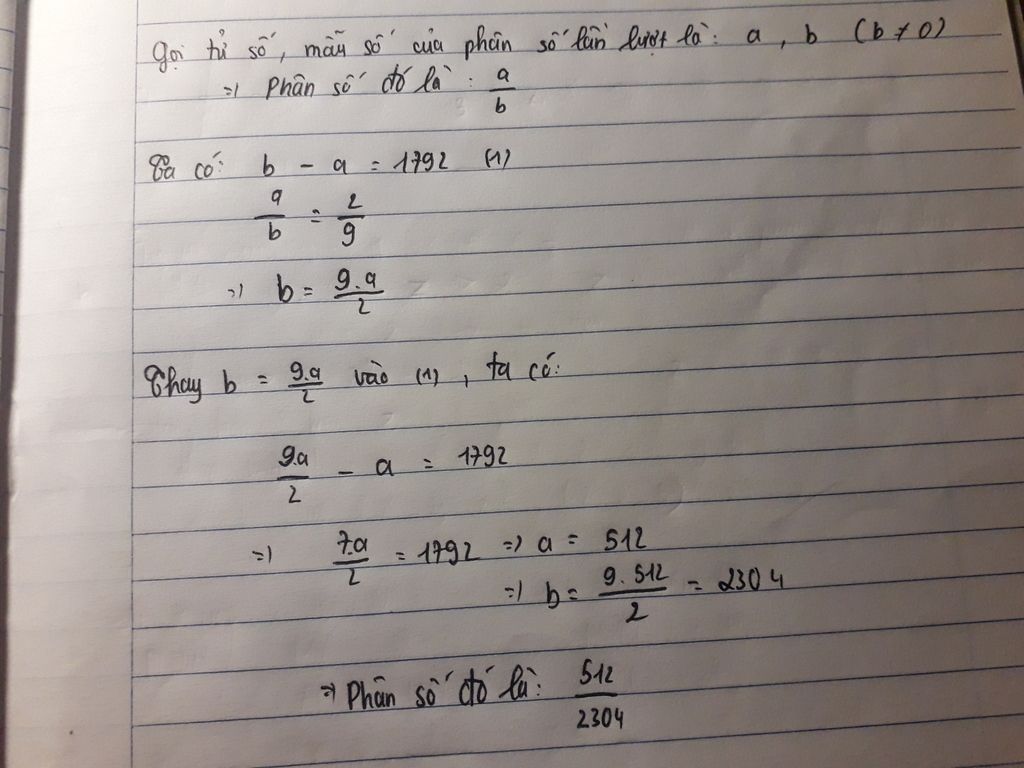 Gọi tử số, mẫu số của phân số lần lượt là: a, b (b ≠ 0)
=> Phân số đó là: a/b
Ta có: b - a = 1792 (1)
a/b = 2/9
=> b = 9.a/2
Thay b = 9.a/2 vào (1), ta có:
9.a/2 - a = 1792
=> 7.a/2 = 1792 => a = 512
=> b = 9.512/2 = 2304
=> Phân số đó là: 512/2304